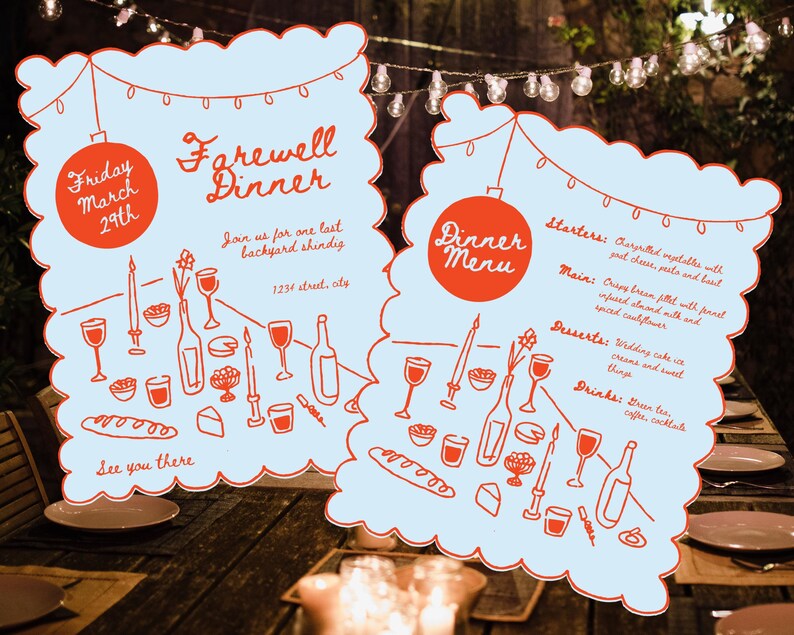 Friday
March
29th
Farewell
Dinner
Join us for one last
backyard shindig
1234 street, city
See you there
Dinner
Menu
Starters: Chargrilled vegetables with
goat cheese, pesto and basil
Main: Crispy bream fillet with fennel
infused almond milk and
spiced cauliflower
Desserts: Wedding cake ice
creams and sweet
things
Drinks: Green tea,
coffee, cocktails